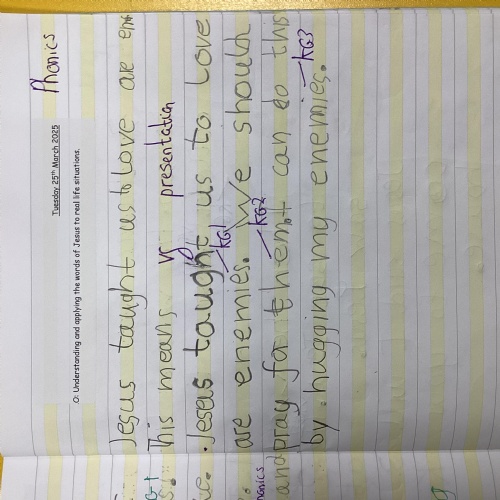 Phonics
Tuesday 25th March 2025
.O: Understanding and applying the words of Jesus to real life situations.
Jesus taught us to Love are
This means VS presentation
.Jesus taught us to Love
KG1
are enemies. We should
KG2
and pray for them. I can do this
KG3
by hugging my enemies.